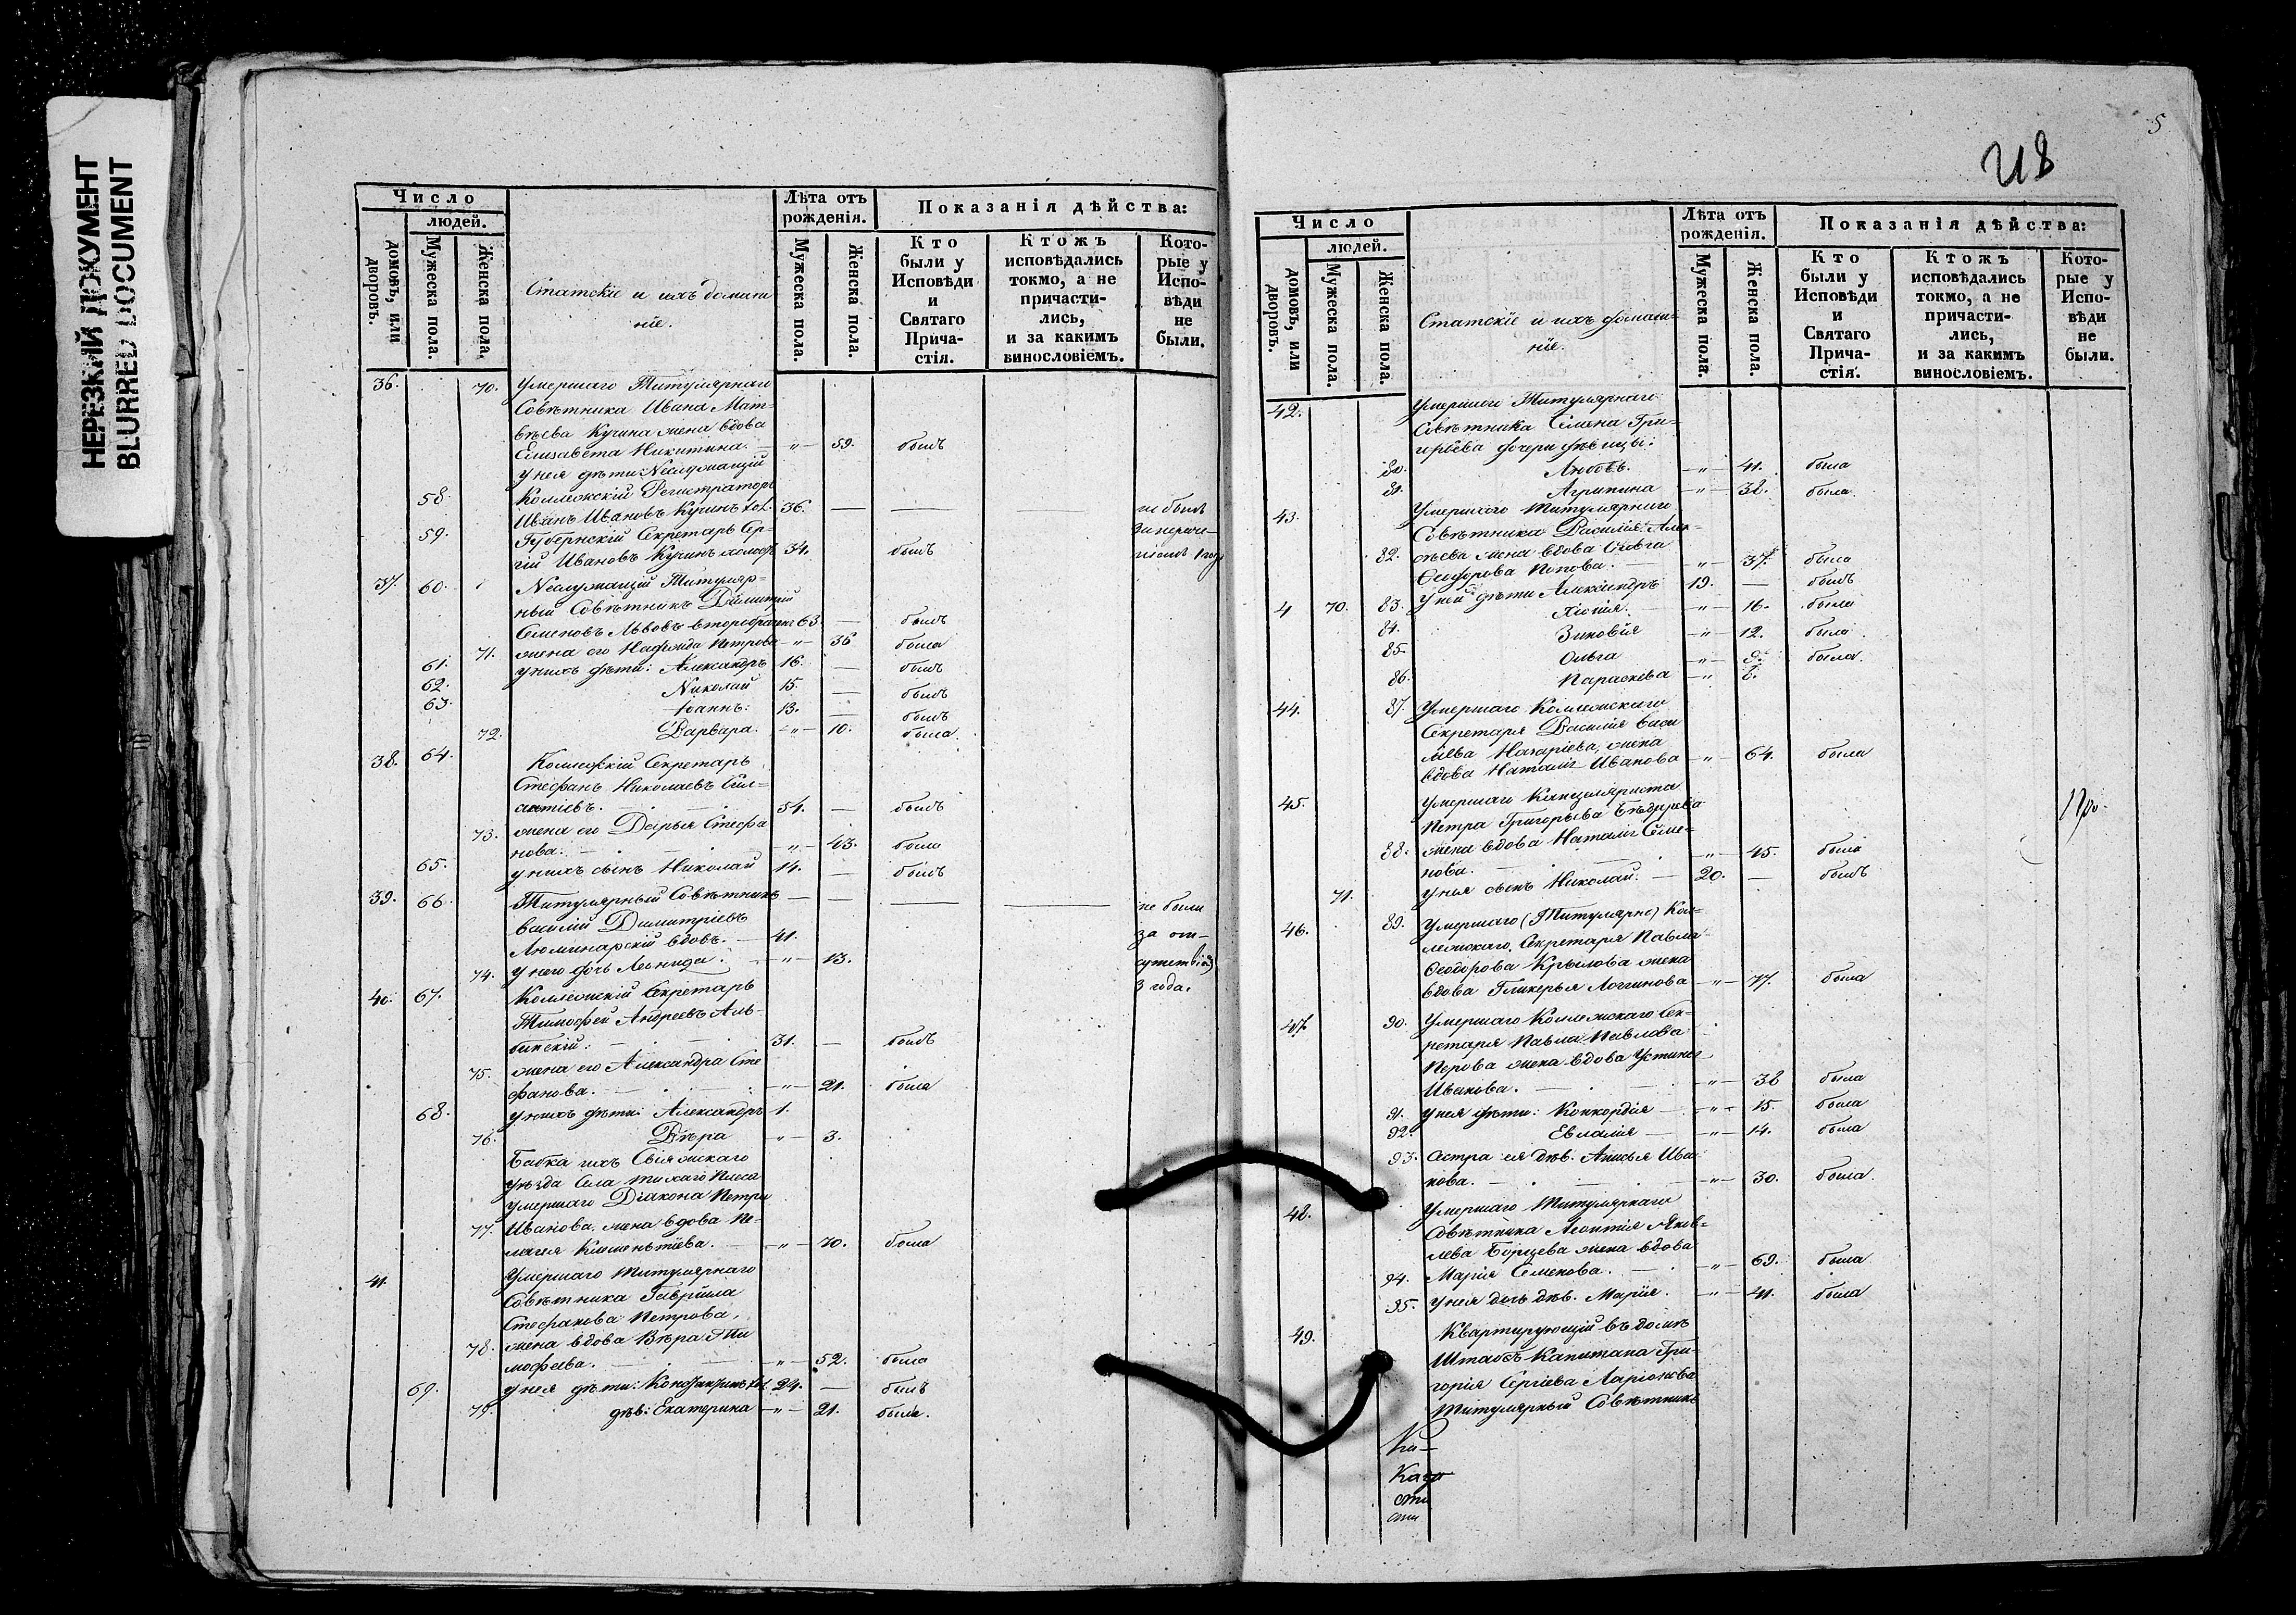 НЕРЕЗКИЙ ДОКУМЕНТ
BLURRED DOCUMENT
Число
людей.
домовъ, или дворовъ.
Мужеска пола.
Женска пола.
Статскіе и ихъ домаш
ніе.
Лѣта отъ рожденія.
Мужеска пола.
Женска пола.
Показанія дѣйства:
Кто были у Исповѣди и Святаго Прича-стія.
Ктожъ исповѣдались токмо, а не причасти-лись, и за какимъ винословіемъ.
Кото-рые у Испо-вѣди не были.
36. 70. Умершаго Титулярнаго
Совѣтника Ивана Мат-
вѣева Кучина жена вдова
Елисавета Никитина. — „ — 59. былъ
у нея дѣти: Неслужащій
58. Коллежскій Регистраторъ
Иванъ Ивановъ Кучинъ хол. 36. — — — не былъ
59. Губернскій Секретарь Сер-
гій Ивановъ Кучинъ холост 34. былъ
37. 60. Неслужащій Титуляр-
ный Совѣтникъ Димитрій
Семеновъ Львовъ второбрачн 63 — былъ
71. жена его Надежда Петрова — „ — 36 была
61. у нихъ дѣти: Александръ 16. — былъ
62. Николай 15. — былъ
63. Іоаннъ: 13. — былъ
72. Варвара. — „ — 10. была.
38. 64. Коллежскій Секретарь
Стефанъ Николаевъ Сил-
антіевъ. 54. — былъ
73. жена его Дарья Стефа
нова. — „ — 43. была
65. у нихъ сынъ Николай 14. — былъ
39. 66. Титулярный Совѣтникъ — — — — не были
Василій Димитріевъ за от-
Люминарскій вдовъ. — 41.
74. у него дочь Леонида. — „ — 13.
3 года.
40. 67. Коллежскій Секретарь
Тимофей Андреевъ Аль-
бинскій: 31. — былъ
75. жена его Александра Сте
фанова. — „ — 21. была
68. у нихъ дѣти: Александръ 1.
76. Вѣра — „ — 3.
Бабка ихъ Свіяжскаго
уѣзда Села Тихаго Плеса
умершаго Діакона Петра
77. Иванова, жена вдова Пе-
лагея Климентіева. — „ — 70. была
41. Умершаго Титулярнаго
Совѣтника Гавріила
Стефанова Петрова,
78. жена вдова Вѣра Ти
мофеева. — „ — 52. была
69. у нея дѣти: Константинъ хол. 24. — былъ
79. дѣв: Екатерина — „ — 21. была.
5
Число
людей.
домовъ, или дворовъ.
Мужеска пола.
Женска пола.
Статскіе и ихъ домаш-
ніе.
Лѣта отъ рожденія.
Мужеска пола.
Женска пола.
Показанія дѣйства:
Кто были у Исповѣди и Святаго Прича-стія.
Ктожъ исповѣдались токмо, а не причасти-лись, и за какимъ винословіемъ.
Кото-рые у Испо-вѣди не были.
42. Умершаго Титулярнаго
Совѣтника Семена Гри-
горьева дочери дѣвицы:
80. Любовь. — „ — 41. была
81. Агрипина — „ — 38. была.
43. Умершаго Титулярнаго
Совѣтника Василія Алек-
82. сѣева жена вдова Ольга
Феодорова Попова. — „ — 37. была
70. у ней дѣти Александръ 19. — былъ
83. — „ — 16. была
84. Зиновія — „ — 12. была
85. Ольга — „ — 9. была.
86. Параскева — „ 8.
44. 87. Умершаго Коллежскаго
Секретаря Василія Васи
льева Назаріева, жена
вдова Наталія Иванова — „ — 64. была
45. Умершаго Канцеляриста
Петра Григорьева
88. жена вдова Наталія Семе-
нова. — „ — 45. была
71. у нея сынъ Николай. — 20. — былъ
46. 89. Умершаго (Титулярно) Кол-
лежскаго Секретаря Павла
Феодорова Крылова жена
вдова Гликерья Логгинова — „ — 77. была
47. 90. Умершаго Коллежскаго Сек-
ретаря Павла Павлова
Перова жена вдова Устинья
Иванова. — „ — 38 была
91. у нея дѣти: Конкордія — „ — 15. была
92. Евлалія — „ — 14. была
93. Сестра ея дѣв. Анисья Ива
нова. — „ — 30. была.
48. Умершаго Титулярнаго
Совѣтника Леонтія Яков-
лева Борцева жена вдова
94. Марія Семенова. — „ — 69. была
95. у нея дочь дѣв. Марія. — „ — 41. была
49. Квартирующій въ домѣ
Штабсъ Капитана Гри-
горія Сергіева Ларіонова
Титулярный Совѣтникъ